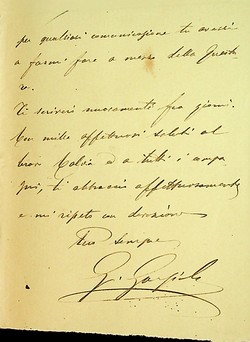 per qualsiasi comunicazione tu avessi
a farmi fare a mezzo della
Ti scriverò nuovamente fra giorni.
Con mille affettuosi saluti al
bravo e a tutti i compa
gni, ti abbraccio affettuosamente
e mi ripeto con devozione
Tuo sempre
G.